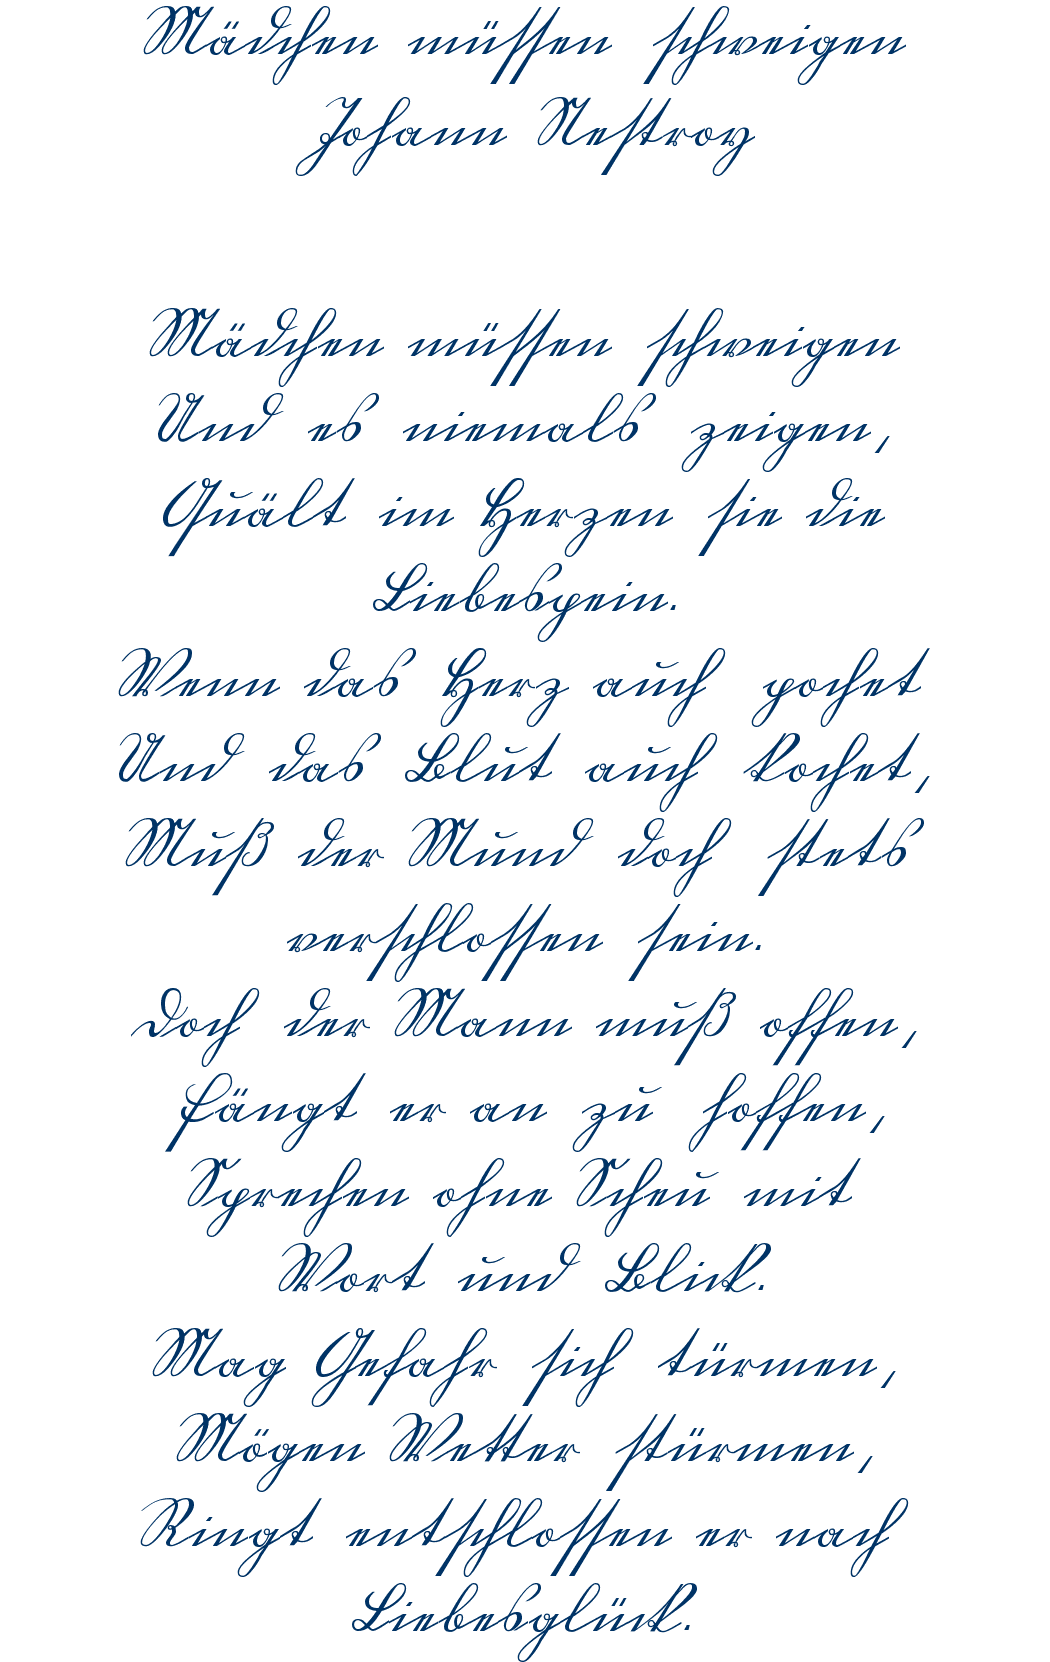 Mädchen müssen schweigen
Johann Nestroy
Mädchen müssen schweigen
Und es niemals zeigen,
Quält im Herzen sie die
Liebespein.
Wenn das Herz auch pochet
Und das Blut auch kochet,
Muß der Mund doch stets
verschlossen sein.
Doch der Mann muß offen,
fängt er an zu hoffen,
Sprechen ohne Scheu mit
Wort und Blick.
Mag Gefahr sich türmen,
Mögen Wetter stürmen,
Ringt entschlossen er nach
Liebesglück.